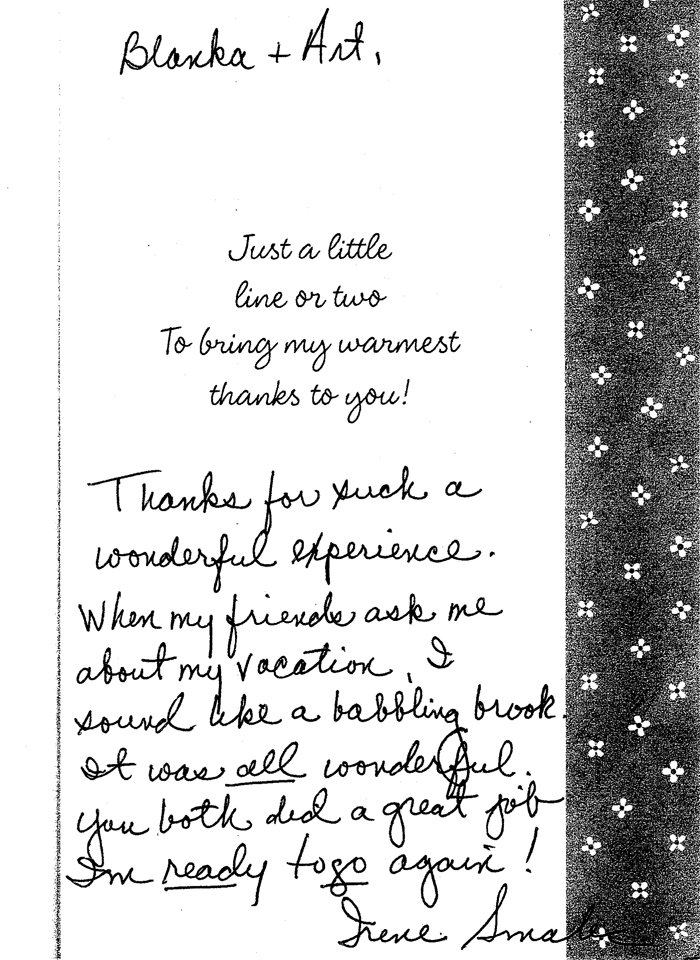 Blanka + Art,
Just a little
line or two
To bring my warmest
thanks to you!
Thanks for such a
wonderful experience.
When my friends ask me
about my vacation, I
sound like a babbling brook.
It was all wonderful.
You both did a great job
I'm ready to go again!
Irene